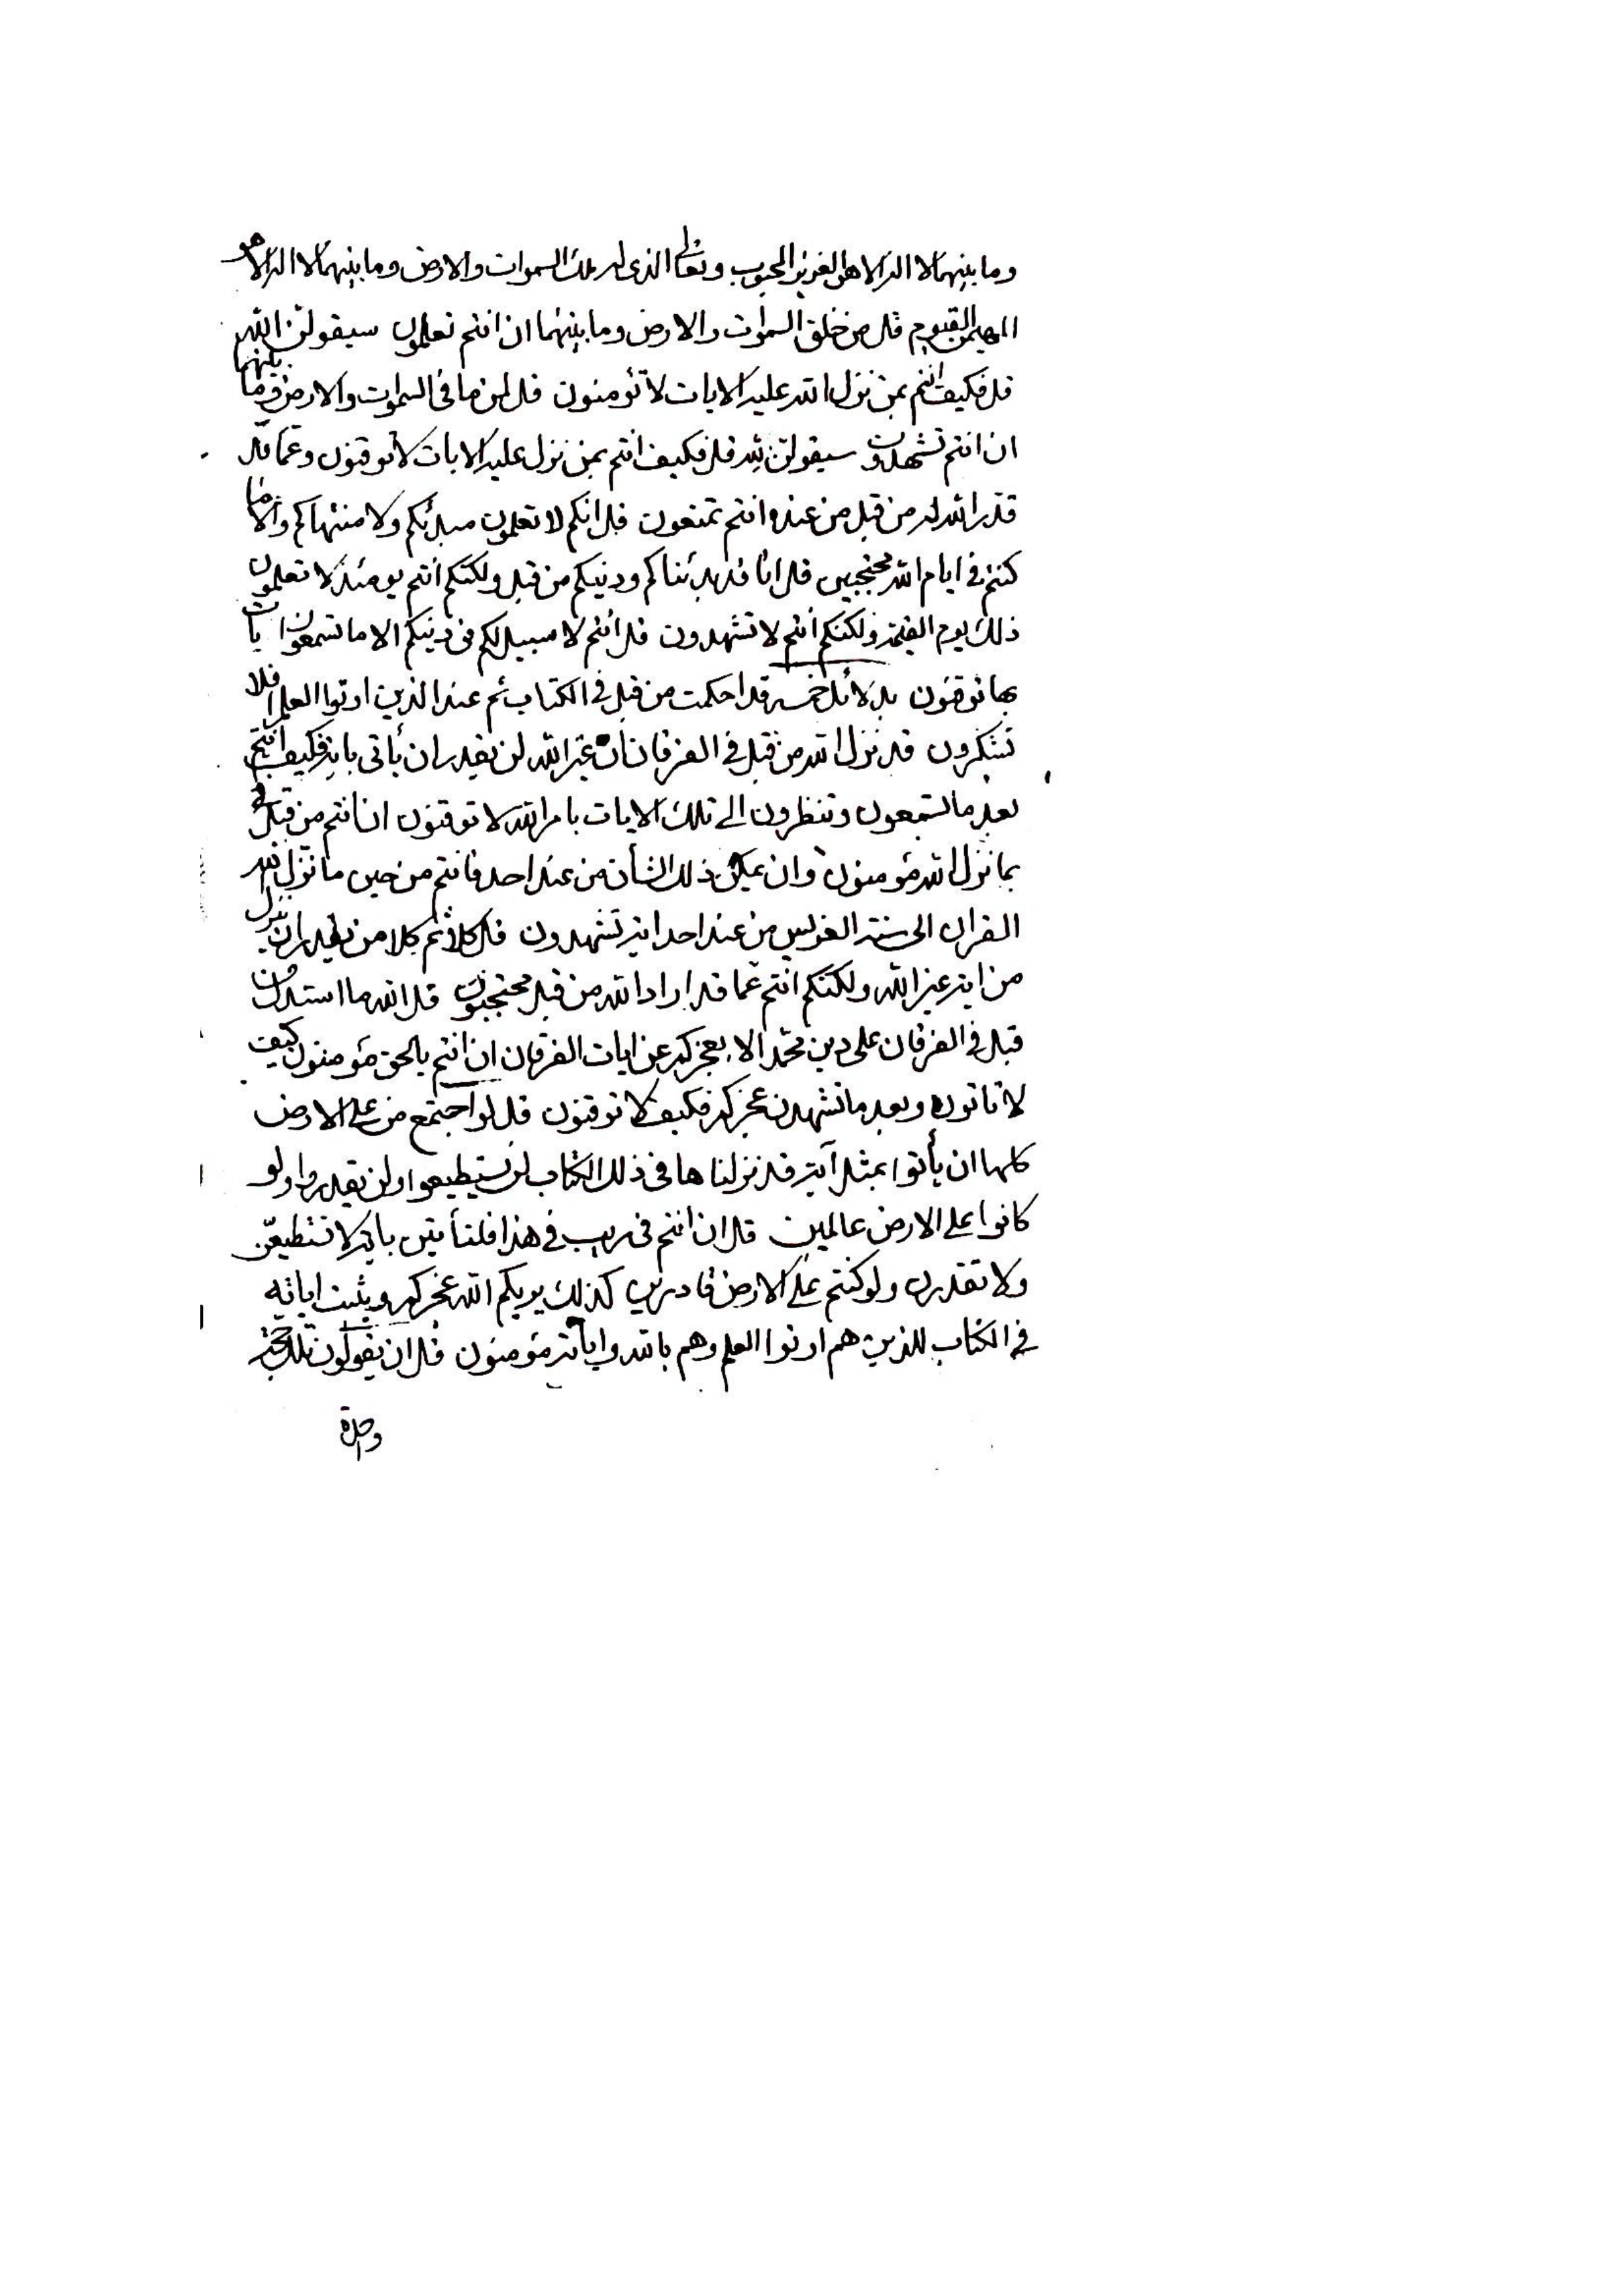 وما بينهما لا اله الا هو العزيز المحبوب وتعالى الذى له ملك السموات والارض وما بينهما لا اله الا هو
المهيمن القيوم قل من خلق السموات والارض وما بينهما ان انتم تعلمون سيقولن الله
قل فكيف انتم بمن نزل الله عليه الايات لا تؤمنون قل لمن ما فى السموات والارض وما بينهما
ان انتم تشهدون سيقولن لله قل فكيف انتم بمن نزل عليه الايات لا توقنون وعما قد
قدر الله له من قبل من عنده انتم تمنعون قل انكم لا تعلمون مبدئكم ولا منتهاكم والا ما
كنتم فى ايام الله محتجبين قل انا قد بدئناكم ودينكم من قبل ولكنكم انتم يومئذ لا تعلمون
ذلك يوم القيمة ولكنكم انتم لا تشهدون قل انتم لا سبيل لكم فى دينكم الا ما تسمعون ايات
بها توقنون بدلائل خمسه قد احكمت من قبل فى الكتاب ثم عند الذين اوتوا العلم افلا
تتفكرون قد نزل الله من قبل فى الفرقان ان غير الله لن يقدر ان يأتى باية فكيف انتم
بعد ما تسمعون وتنظرون الى تلك الايات بامر الله لا توقنون ان انتم من قبل
بما نزل الله مؤمنون وان يمكن ذلك الشأن من عند احد فانتم من حين ما نزل الله
القران الى سنة الغرس من عند احد اية تشهدون قل كلا ثم كلا من يقدر ان ينزل
من اية غير الله ولكنكم انتم عما قد اراد الله من قبل محتجبون قل الله ما استدل من
قبل فى الفرقان على دين محمد الا بعجزكم عن ايات الفرقان ان انتم بالحق مؤمنون كيف
لا تاتون وبعد ما تشهدن عجزكم فكيف لا توقنون قل لو اجتمع من على الارض
كلها ان يأتوا بمثل آية قد نزلنا ها فى ذلك الكتاب لن يستطيعوا ولن يقدروا ولو
كانوا على الارض عالمين قل ان انتم فى ريب فى هذا فلتأتين باية لا تستطيعن
ولا تقدرن ولو كنتم على الارض قادرين كذلك يريكم الله عجزكم ويثبت اياته
فى الكتاب للذين هم اوتوا العلم وهم بالله واياته مؤمنون قل ان يقولون تلك حجة
واحدة